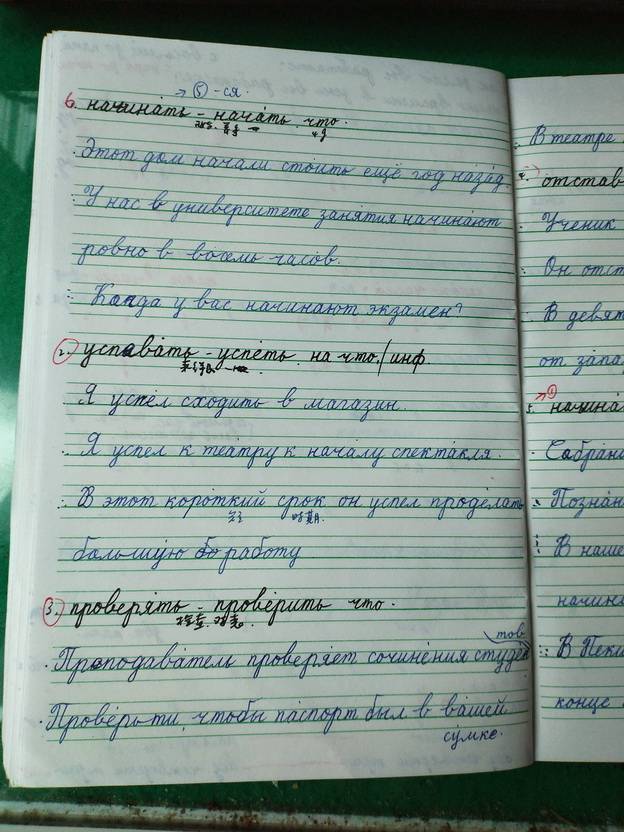 →⑤ -ся.
6. начина́ть - нача́ть что.
Этот дом начали стоить ещё год наза́д.
У нас в университете заня́тия начина́ют
ровно в восемь часо́в.
Когда у вас начинают экза́мен?
2. успева́ть - успе́ть на что / инф.
Я успе́л сходить в магазин.
Я успел к теа́тру к нача́лу спекта́кля.
В этот коро́ткий срок он успел проде́лать
时期
большую бо работу
3. проверя́ть - прове́рить что.
тов
Преподава́тель проверя́ет сочине́ния студен
Прове́рьти, чтобы па́спорт был в ва́шей
сумке.
В театре
4.
отстав
Ученик
Он отст
В девят
от запа
5. начина
Собрани
Позна́н
В наше
начина
В Пеки
конце